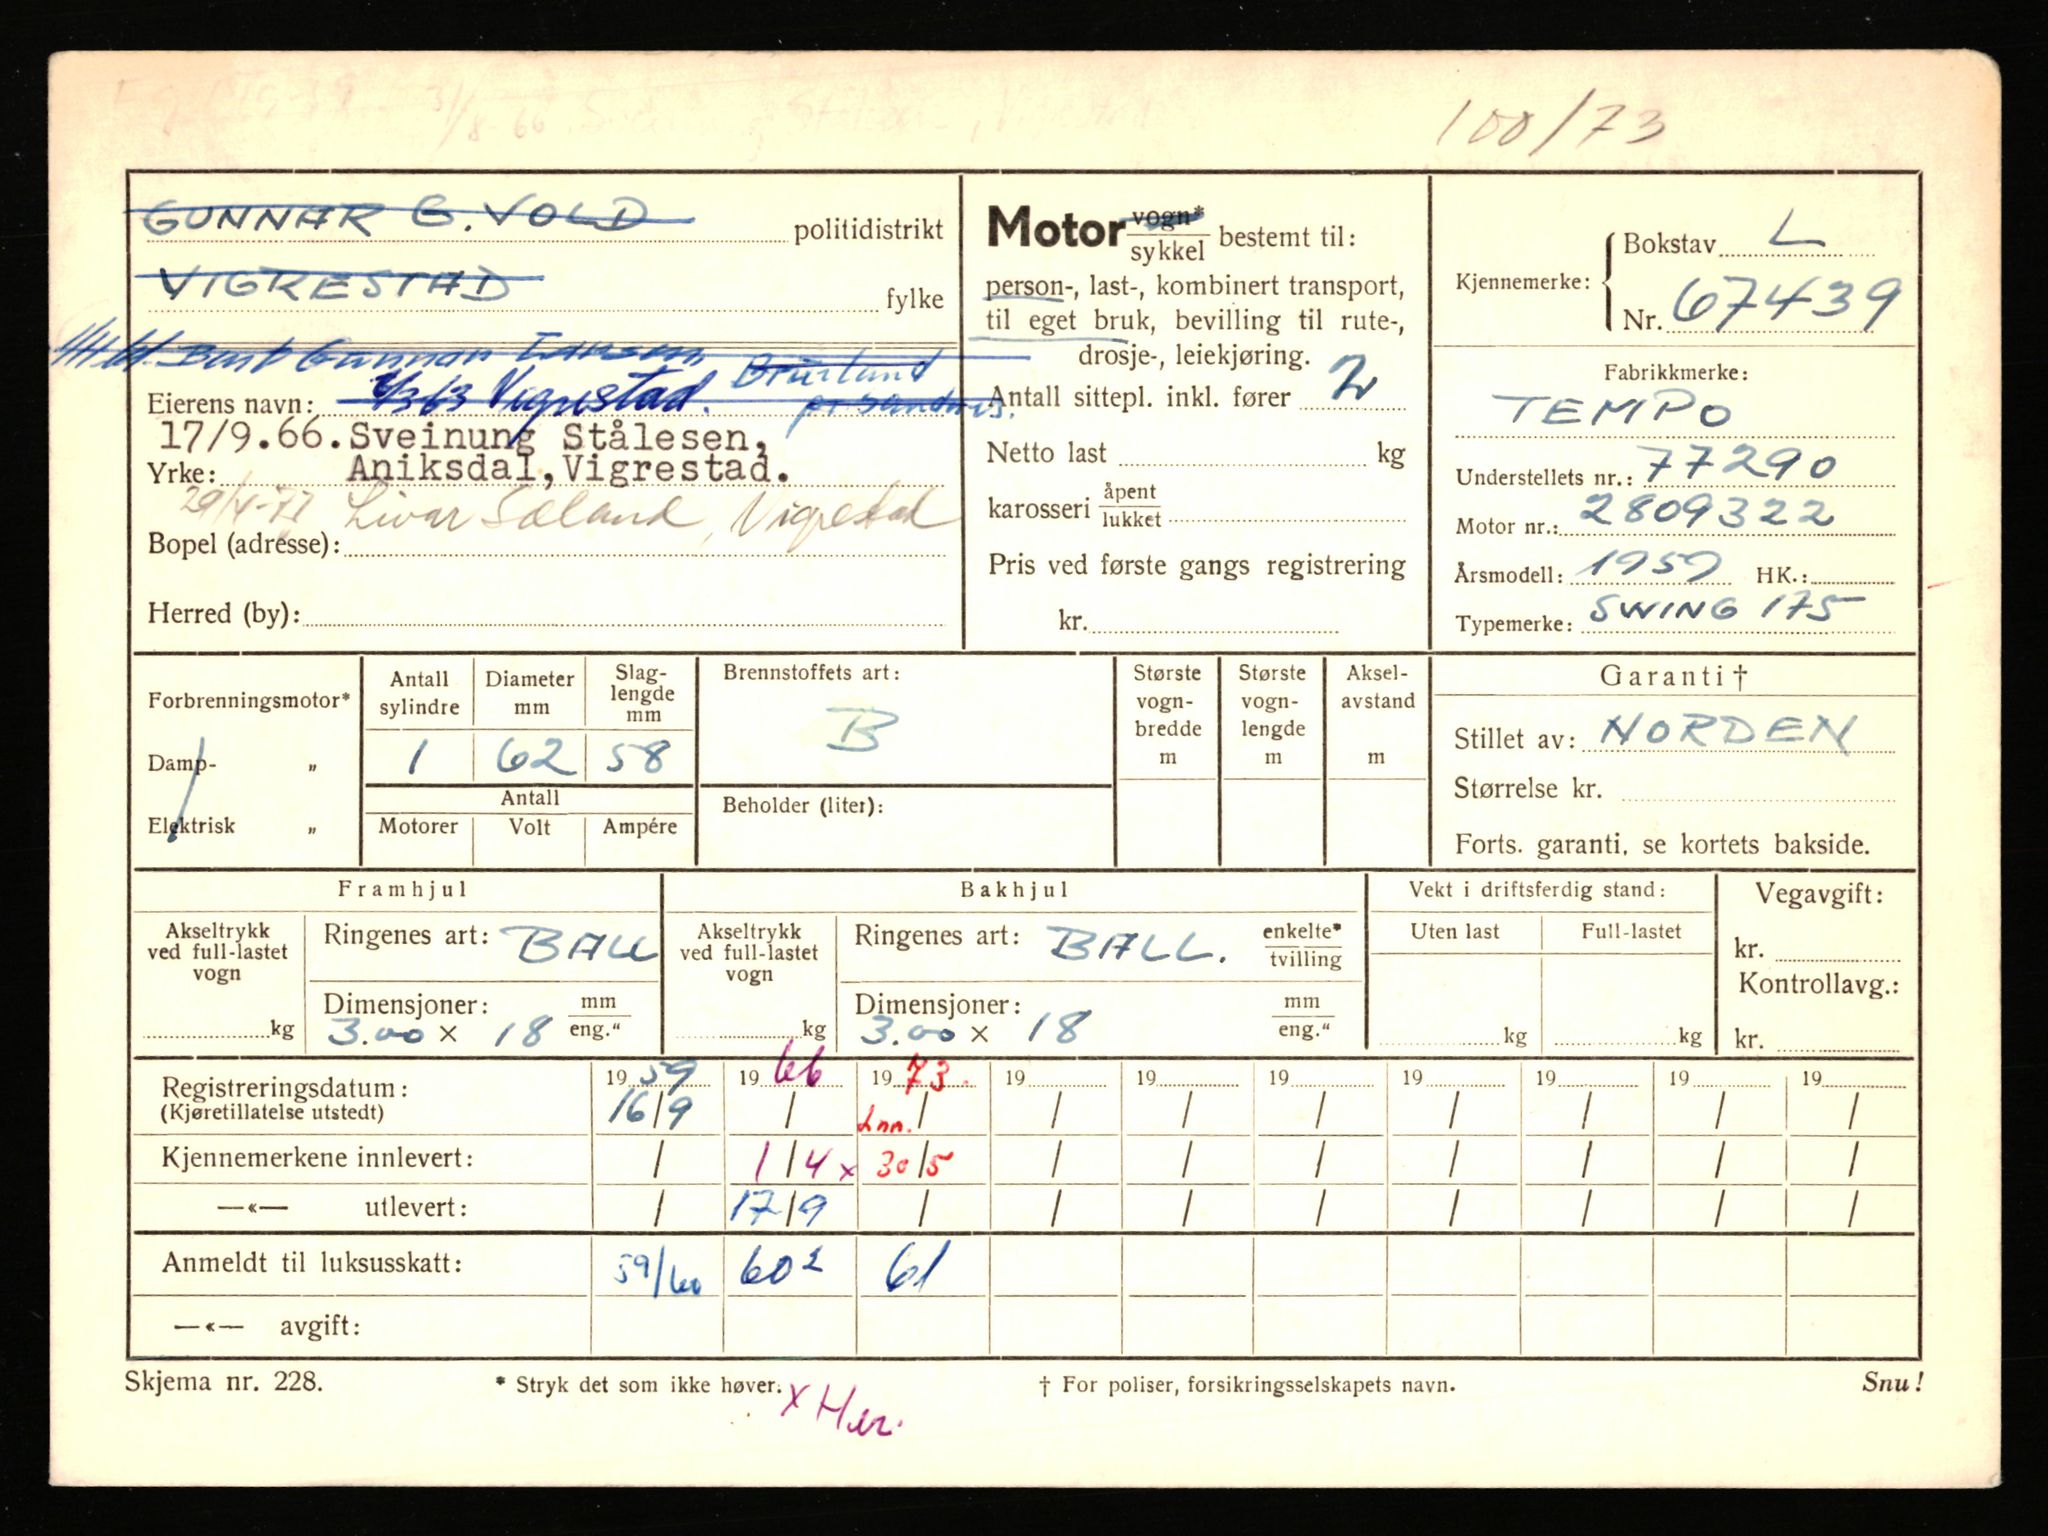 100/73
GUNNAR G. VOLD politidistrikt
VIGRESTAD fylke
Gunnar
Eierens navn: Vigrestad.
17/9.66. Sveinung Stålesen,
Yrke: Aniksdal, Vigrestad.
Livar Sæland, Vigrestad
Bopel (adresse):
Herred (by):
Motor vogn* / sykkel bestemt til:
person-, last-, kombinert transport,
til eget bruk, bevilling til rute-,
drosje-, leiekjøring.
Antall sittepl. inkl. fører 2
Netto last kg
karosseri åpent / lukket
Pris ved første gangs registrering
kr.
Kjennemerke: Bokstav L
Nr. 67439
Fabrikkmerke:
TEMPO
Understellets nr.: 77290
Motor nr.: 2809322
Årsmodell: 1959 HK.:
Typemerke: SWING 175
Forbrenningsmotor*
Damp- „
Elektrisk „
Antall sylindre 1
Diameter mm 62
Slag-lengde mm 58
Antall
Motorer Volt Ampére
Brennstoffets art:
B
Beholder (liter):
Største vogn-bredde m
Største vogn-lengde m
Aksel-avstand m
Garanti †
Stillet av: NORDEN
Størrelse kr.
Forts. garanti, se kortets bakside.
Framhjul
Akseltrykk ved full-lastet vogn kg
Ringenes art: BALL
Dimensjoner: mm / eng."
3.00 x 18
Bakhjul
Akseltrykk ved full-lastet vogn kg
Ringenes art: BALL. enkelte* / tvilling
Dimensjoner: mm / eng."
3.00 x 18
Vekt i driftsferdig stand:
Uten last Full-lastet
kg kg
Vegavgift:
kr.
Kontrollavg.:
kr.
Registreringsdatum: 19 59 19 66 19 73. 19 19 19 19 19 19 19
(Kjøretillatelse utstedt) 16/9 / Inn. / / / / / / / /
Kjennemerkene innlevert: / 1/4 x 30/5 / / / / / / /
—«— utlevert: / 17/9 / / / / / / / /
Anmeldt til luksusskatt: 59/60 60² 61
—«— avgift:
Skjema nr. 228. * Stryk det som ikke høver. † For poliser, forsikringsselskapets navn. Snu!
x Her.